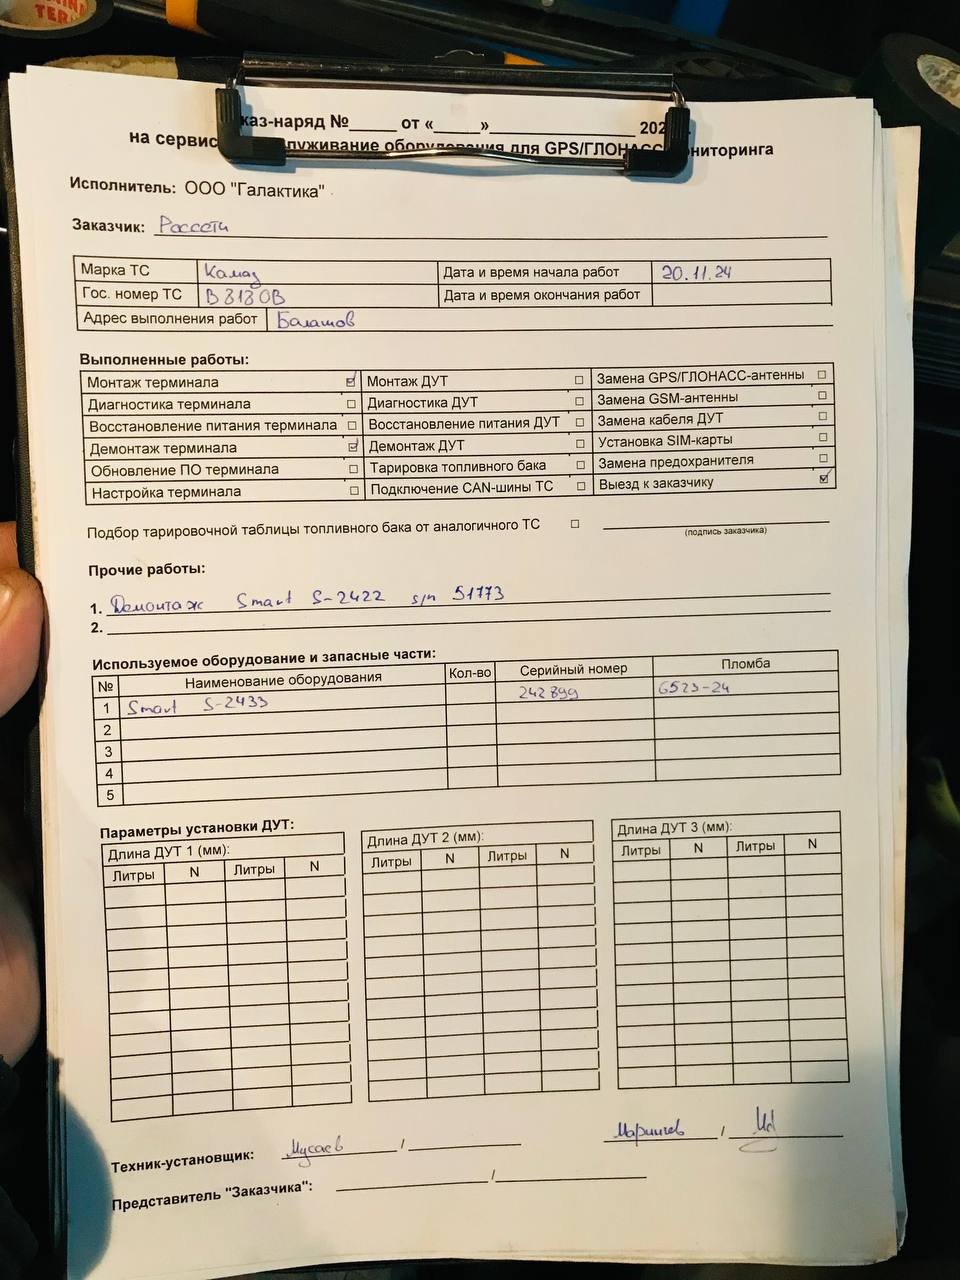 каз-наряд №_____ от «_____»_______________ 202
на сервис луживание оборудования для GPS/ГЛОНАСС ониторинга
Исполнитель: ООО "Галактика"
Заказчик: Россети
Марка ТС Камаз Дата и время начала работ 20.11.24
Гос. номер ТС В 818 ОВ Дата и время окончания работ
Адрес выполнения работ Балашов
Выполненные работы:
Монтаж терминала ☑ Монтаж ДУТ ☐ Замена GPS/ГЛОНАСС-антенны ☐
Диагностика терминала ☐ Диагностика ДУТ ☐ Замена GSM-антенны ☐
Восстановление питания терминала ☐ Восстановление питания ДУТ ☐ Замена кабеля ДУТ ☐
Демонтаж терминала ☑ Демонтаж ДУТ ☐ Установка SIM-карты ☐
Обновление ПО терминала ☐ Тарировка топливного бака ☐ Замена предохранителя ☐
Настройка терминала ☐ Подключение CAN-шины ТС ☐ Выезд к заказчику ☑
Подбор тарировочной таблицы топливного бака от аналогичного ТС ☐
(подпись заказчика)
Прочие работы:
1. Демонтаж Smart S-2422 s/n 51773
2.
Используемое оборудование и запасные части:
№ Наименование оборудования Кол-во Серийный номер Пломба
1 Smart S-2433 242899 6523-24
2
3
4
5
Параметры установки ДУТ:
Длина ДУТ 1 (мм): Длина ДУТ 2 (мм): Длина ДУТ 3 (мм):
Литры N Литры N Литры N Литры N Литры N Литры N
Техник-установщик: Мусаев / Маринчев /
Представитель "Заказчика": /